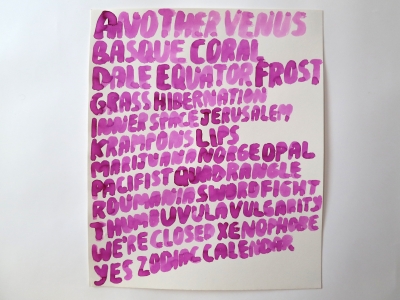 ANOTHER VENUS
BASQUE CORAL
DALE EQUATOR FROST
GRASS HIBERNATION
INNERSPACE JERUSALEM
KRAMPONS LIPS
MARIJUANA NORGE OPAL
PACIFIST QUADRANGLE
ROUMANIA SWORDFIGHT
THUMB UVULA VULGARITY
WE'RE CLOSED XENOPHOBE
YES ZODIAC CALENDAR